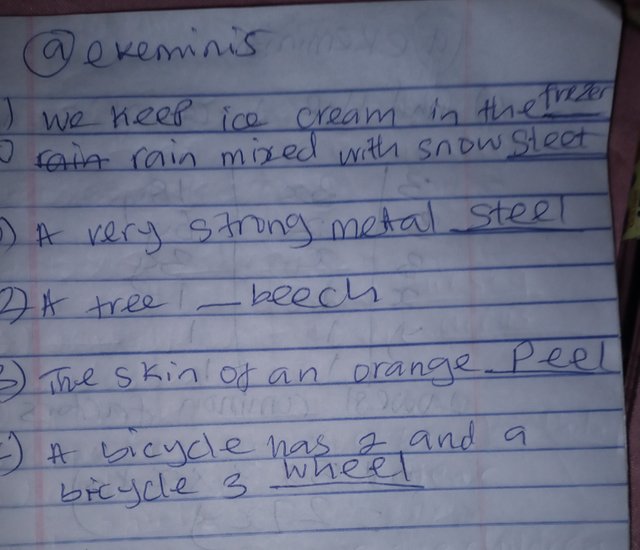 @ekeminis
) we keep ice cream in the frezer
) rain rain mixed with snow sleet
) A very strong metal steel
2) A tree beech
3) The skin of an orange Peel
) A bicycle has 2 and a
bicycle 3 wheel